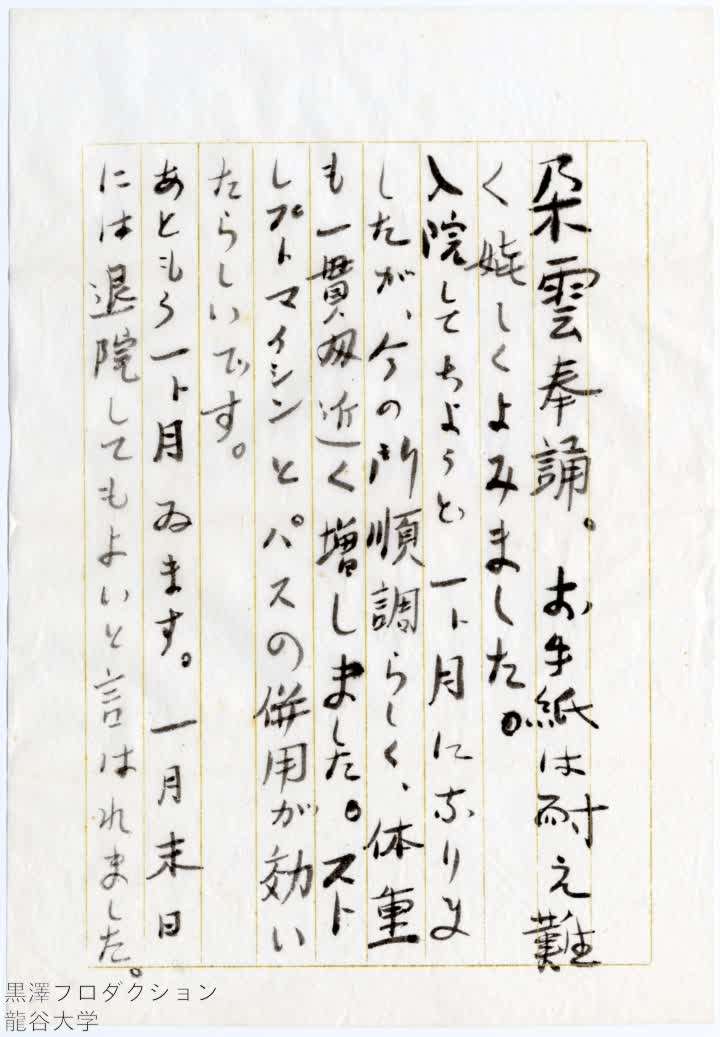 朶雲奉誦。お手紙は耐え難
く嬉しくよみました。
入院してちようど一ト月になりま
したが、今の所順調らしく、体重
も一貫匁近く増しました。スト
レプトマイシンとパスの併用が効い
たらしいです。
あともう一ト月ゐます。一月末日
には退院してもよいと言はれました。
黒澤プロダクション
龍谷大学